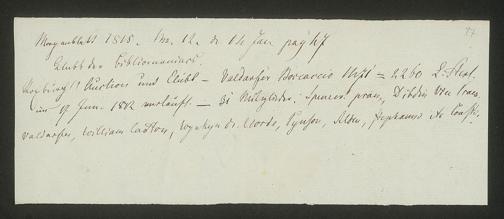 Morgenblatt 1818. Nro. 12. d. 14 Jan. pag 47
Clubb der Bibliomanen.
Roxburgh Auction und Clubb – Valdarfer Boccaccio 1471 = 2260 £ Sterl.
im 17 Jun. 1812 verkauft. – 31 Mitglieder: Spencer präs., Dibdin Vice
Valdarfer, William Caxton, Wynkyn de Worde, Pynson, Aldus, Stephanus